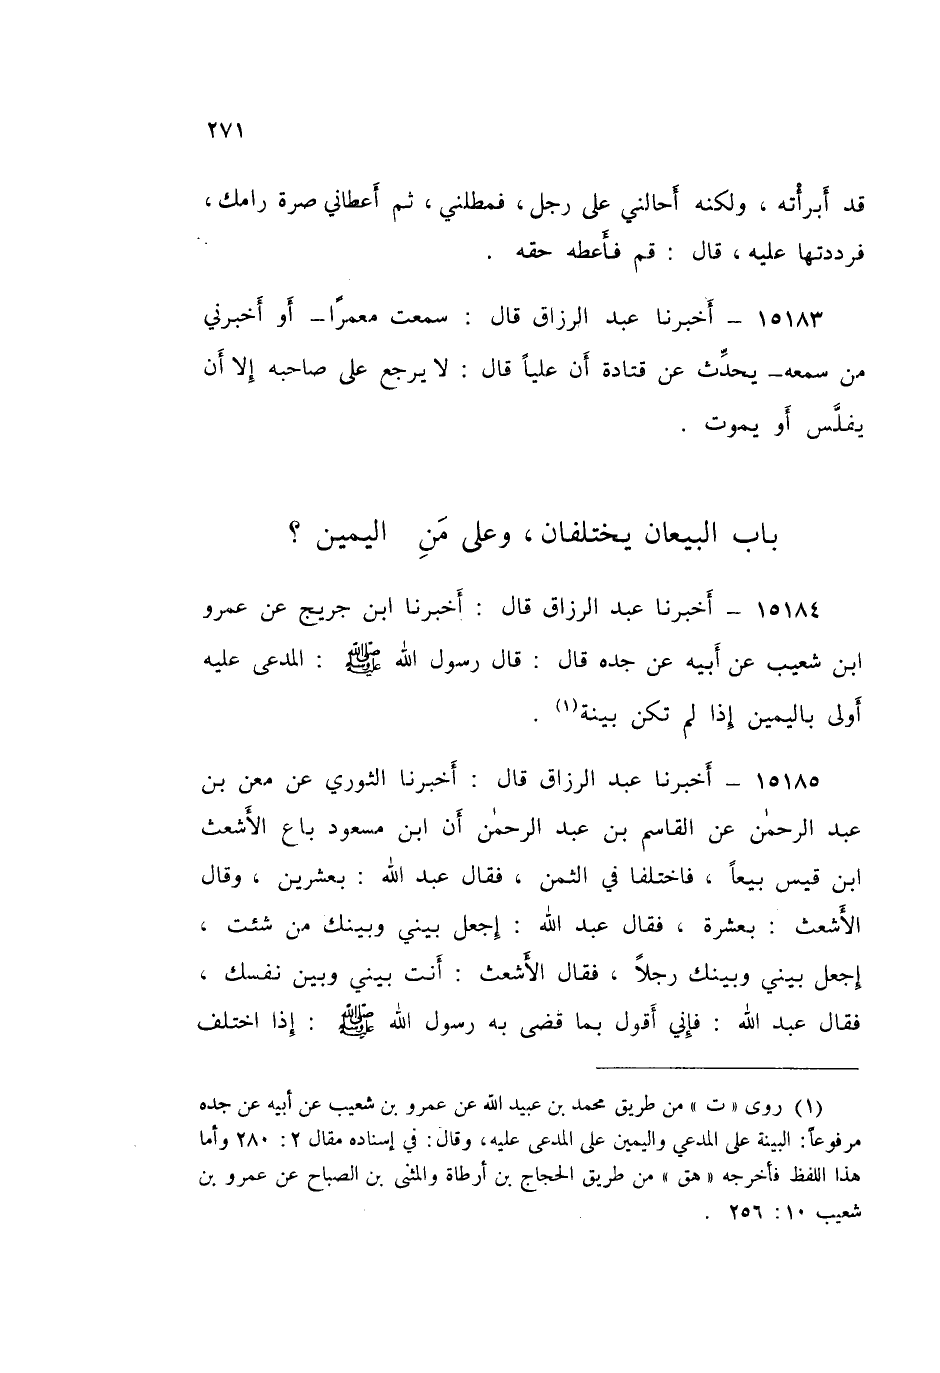 ٢٧١
قد أَبرأْته ، ولكنه أَحالني على رجل ، فمطلني ، ثم أَعطاني صرة رامك ،
فرددتها عليه ، قال : قم فأَعطه حقه .
١٥١٨٣ – أَخبرنا عبد الرزاق قال : سمعت معمرًا– أَو أَخبرني
من سمعه– يحدِّث عن قتادة أَن علياً قال : لا يرجع على صاحبه إِلا أَن
يفلَّس أَو يموت .
باب البيعان يختلفان ، وعلى مَنِ اليمين ؟
١٥١٨٤ – أَخبرنا عبد الرزاق قال : أَخبرنا ابن جريج عن عمرو
ابن شعيب عن أَبيه عن جده قال : قال رسول الله ﷺ : المدعى عليه
أَولى باليمين إِذا لم تكن بينة(١) .
١٥١٨٥ – أَخبرنا عبد الرزاق قال : أَخبرنا الثوري عن معن بن
عبد الرحمٰن عن القاسم بن عبد الرحمٰن أَن ابن مسعود باع الأَشعث
ابن قيس بيعاً ، فاختلفا في الثمن ، فقال عبد الله : بعشرين ، وقال
الأَشعث : بعشرة ، فقال عبد الله : إِجعل بيني وبينك من شئت ،
إِجعل بيني وبينك رجلاً ، فقال الأَشعث : أَنت بيني وبين نفسك ،
فقال عبد الله : فإِني أَقول بما قضى به رسول الله ﷺ : إِذا اختلف
(١) روى « ت » من طريق محمد بن عبيد الله عن عمرو بن شعيب عن أبيه عن جده
مرفوعاً: البينة على المدعي واليمين على المدعى عليه، وقال: في إسناده مقال ٢: ٢٨٠ وأما
هذا اللفظ فأخرجه « هق » من طريق الحجاج بن أرطاة والمثنى بن الصباح عن عمرو بن
شعيب ١٠: ٢٥٦ .